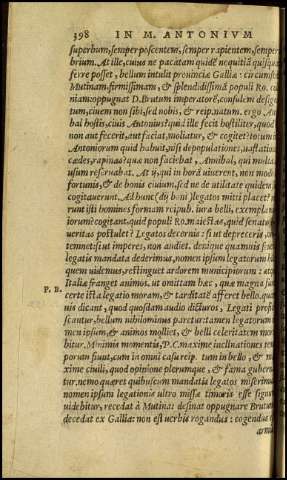 398 IN M. ANTONIVM
superbum, semper poscentem, semper rapientem, semper
brium. At ille, cuius ne pacatam quidē nequitiā quisquā
ferre posset, bellum intulit prouinciæ Galliæ: circumsē
Mutinam, firmissimam, & splendidißimā populi Ro. co
niam: oppugnat D. Brutum imperatorē, consulem desig
tum, ciuem non sibi, sed nobis, & reip. natum. ergo
bal hostis, ciuis Antonius? quid ille fecit hostiliter, quod
non aut fecerit, aut faciat, moliatur, & cogitet? totum
Antoniorum quid habuit, nisi depopulationes, uastation
cædes, rapinas? quæ non faciebat, Annibal, qui multa
usum reseruabat. At ij, qui in hora uiuerent, non modo
fortunis, & de bonis ciuium, sed ne de utilitate quidem
cogitauerunt. Ad hunc (dij boni) legatos mitti placet?
runt isti homines formam reipub. iura belli, exempla
iorum? cogitant, quid populi Ro. maiestas, quid senatus
ueritas postulet? Legatos decernis: si ut deprecere, con
temnet: si ut imperes, non audiet. denique quamuis seue
legatis mandata dederimus, nomen ipsum legatorum h
quem uidemus, restinguet ardorem municipiorum: atq
Italiæ franget animos. ut omittam hæc, quæ magna sun
P. R. certe ista legatio moram, & tarditatē afferet bello. qua
uis dicant, quod quosdam audio dicturos, Legati profi
scantur, bellum nihilominus paretur: tamen legatorum
men ipsum, & animos molliet, & belli celeritatem mor
bitur. Minimis momentis, P. C. maximæ inclinationes tem
porum fiunt, cum in omni casu reip. tum in bello, & ma
xime ciuili, quod opinione plerumque, & fama guberna
tur. nemo quæret quibus cum mandatis legatos miserimus
nomen ipsum legationis ultro missæ timoris esse signum
uidebitur. recedat à Mutina: desinat oppugnare Brutum
decedat ex Gallia: non est uerbis rogandus: cogendus
arma